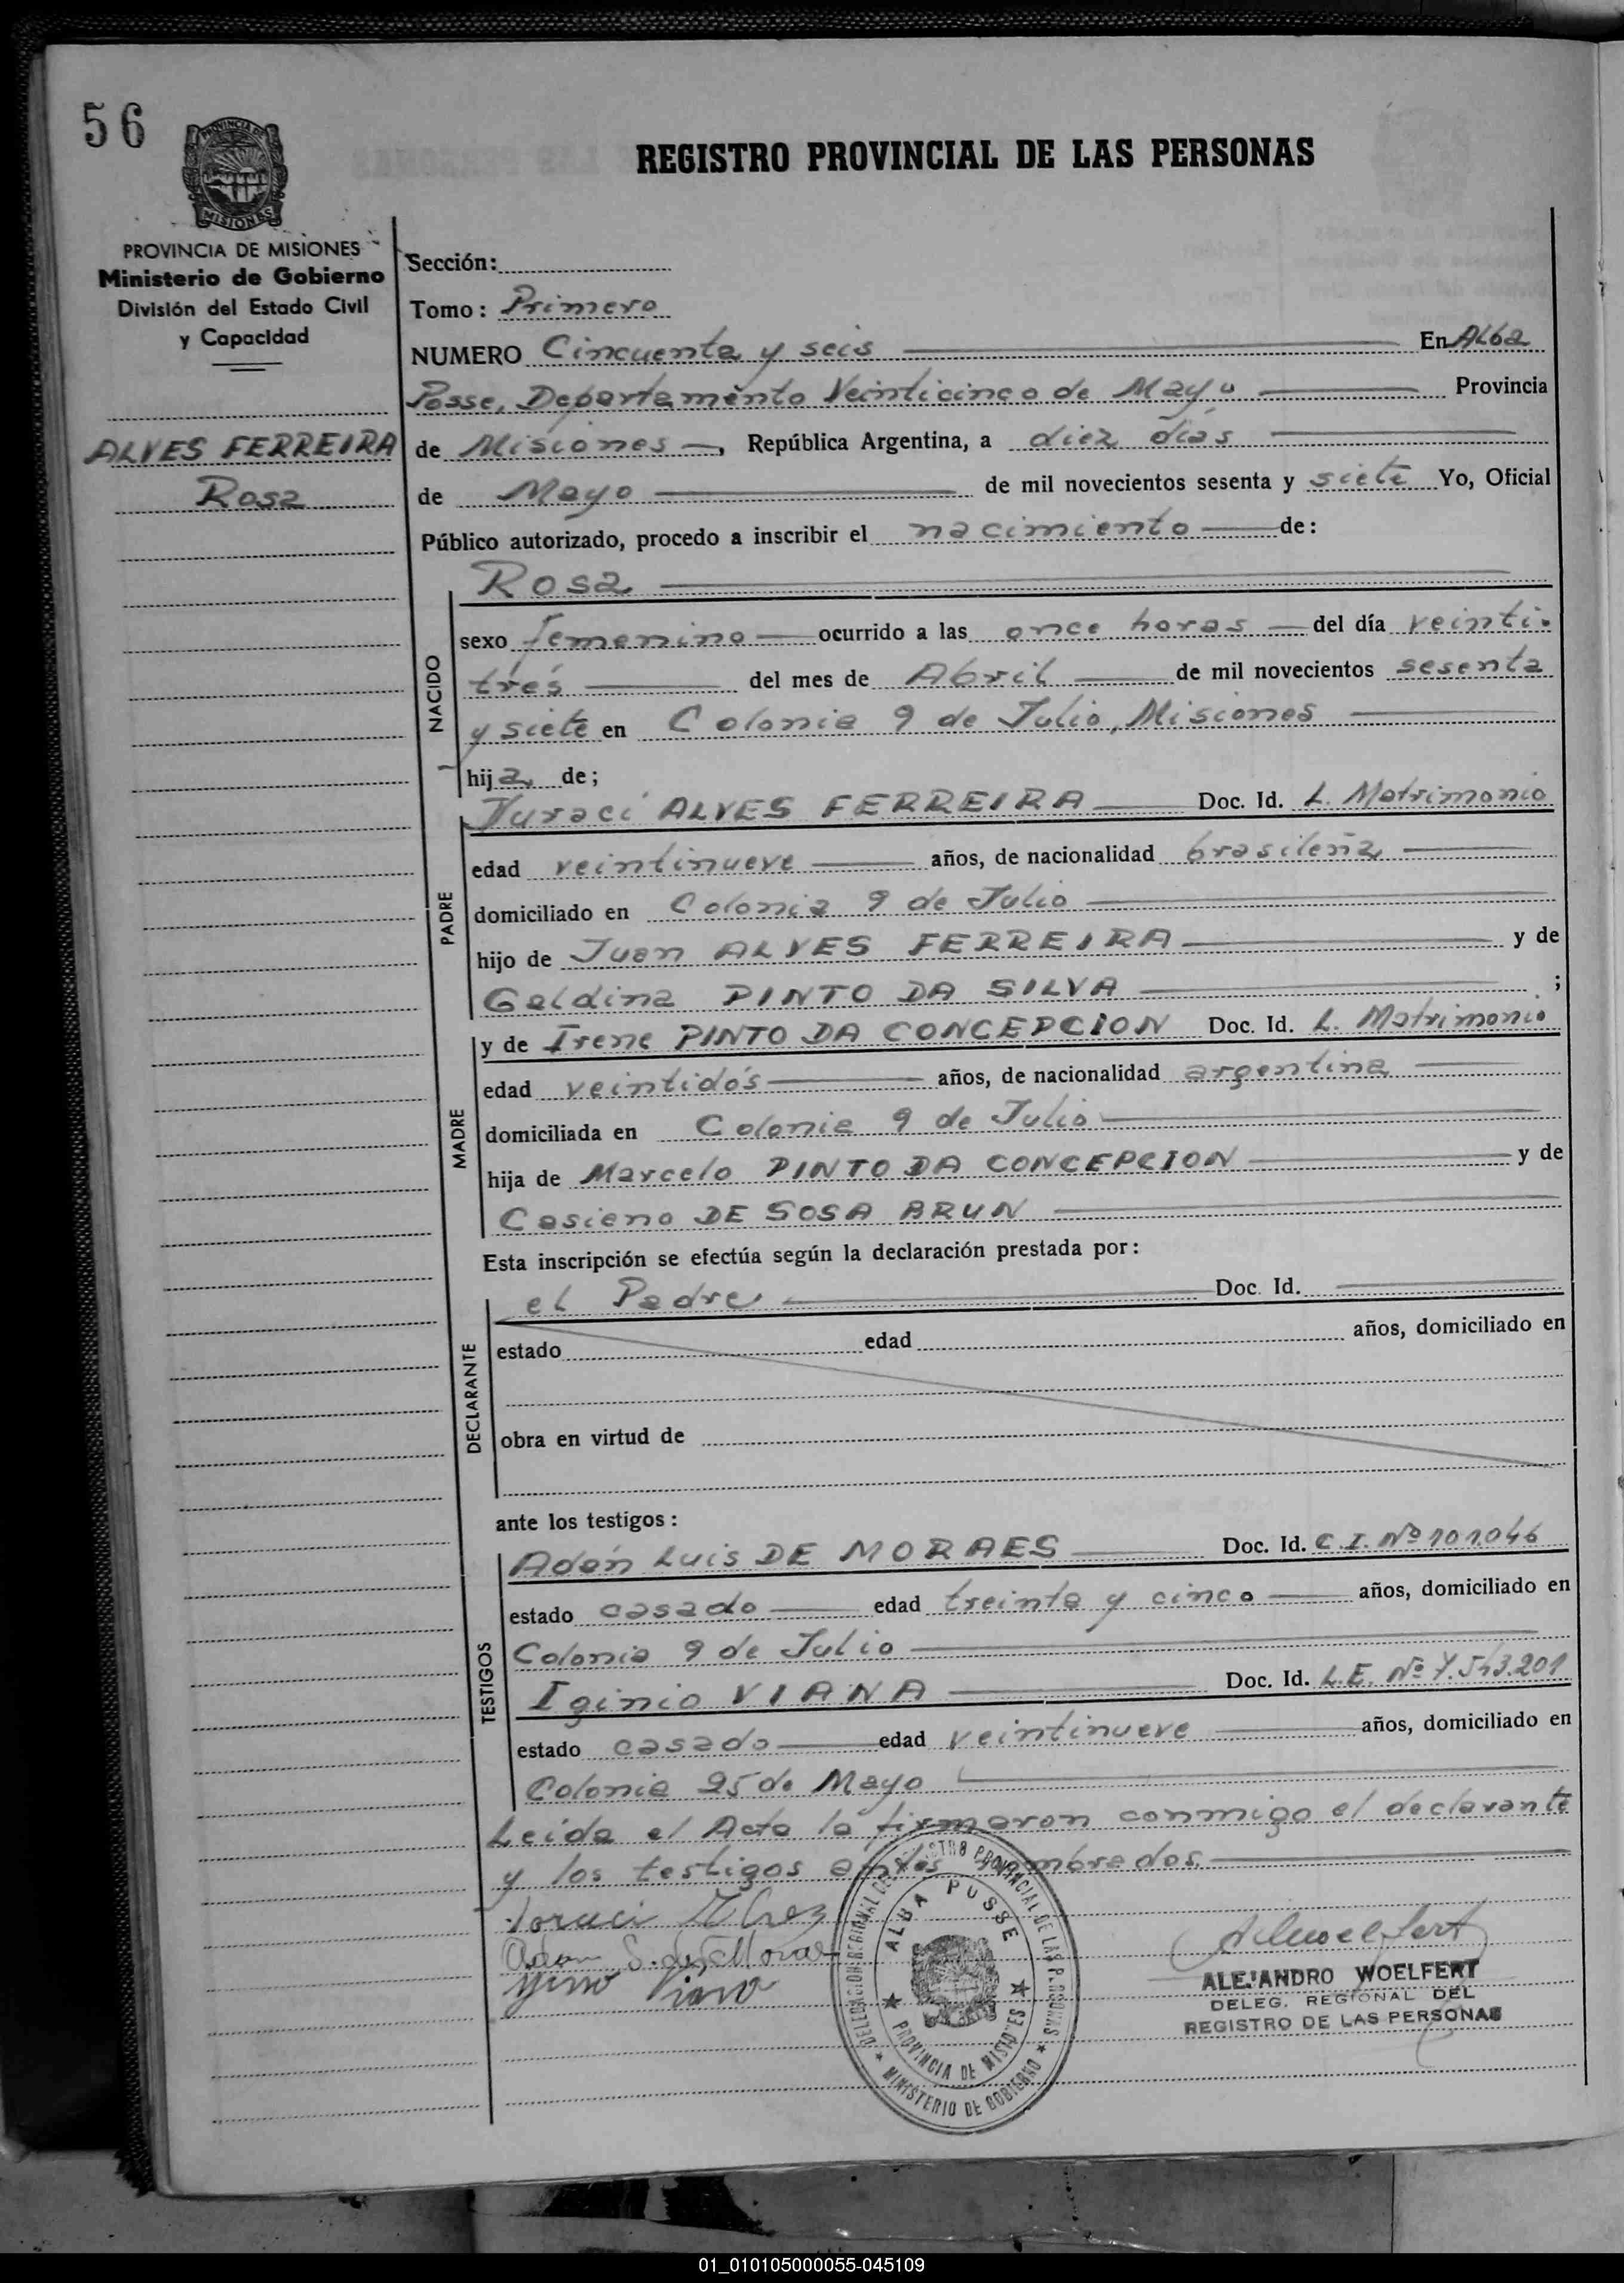 56
PROVINCIA DE
MISIONES
REGISTRO PROVINCIAL DE LAS PERSONAS
PROVINCIA DE MISIONES
Ministerio de Gobierno
División del Estado Civil
y Capacidad
ALVES FERREIRA
Rosa
Sección:
Tomo: Primero
NUMERO Cincuenta y seis En Alba
Posse, Departamento Veinticinco de Mayo Provincia
de Misiones, República Argentina, a diez días
de Mayo de mil novecientos sesenta y siete Yo, Oficial
Público autorizado, procedo a inscribir el nacimiento de:
NACIDO
Rosa
sexo femenino ocurrido a las once horas del día veinti-
trés del mes de Abril de mil novecientos sesenta
y siete en Colonia 9 de Julio, Misiones
hija de;
PADRE
Juraci ALVES FERREIRA Doc. Id. L. Matrimonio
edad veintinueve años, de nacionalidad brasileña
domiciliado en Colonia 9 de Julio
hijo de Juan ALVES FERREIRA y de
Galdina PINTO DA SILVA ;
MADRE
y de Irene PINTO DA CONCEPCION Doc. Id. L. Matrimonio
edad veintidós años, de nacionalidad argentina
domiciliada en Colonia 9 de Julio
hija de Marcelo PINTO DA CONCEPCION y de
Casiena DE SOSA BRUN
Esta inscripción se efectúa según la declaración prestada por:
DECLARANTE
el Padre Doc. Id.
estado edad años, domiciliado en
obra en virtud de
ante los testigos:
TESTIGOS
Adán Luis DE MORAES Doc. Id. C.I. Nº 101.046
estado casado edad treinta y cinco años, domiciliado en
Colonia 9 de Julio
Iginio VIANA Doc. Id. L.E. Nº 7.543.201
estado casado edad veintinueve años, domiciliado en
Colonia 25 de Mayo
Leída el Acta la firmaron conmigo el declarante
y los testigos antes nombrados.
DELEGACION REGIONAL DEL REGISTRO PROVINCIAL DE LAS PERSONAS
ALBA POSSE
PROVINCIA DE MISIONES
MINISTERIO DE GOBIERNO
ALEJANDRO WOELFERT
DELEG. REGIONAL DEL
REGISTRO DE LAS PERSONAS
01_010105000055-045109